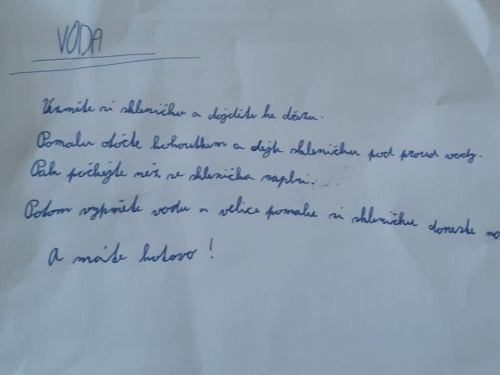 VODA
Vezměte si skleničku a dojděte ke dřezu.
Pomalu otočte kohoutkem a dejte skleničku pod proud vody.
Pak počkejte než se sklenička naplní.
Potom vypněte vodu a velice pomalu si skleničku doneste na
A máte hotovo!